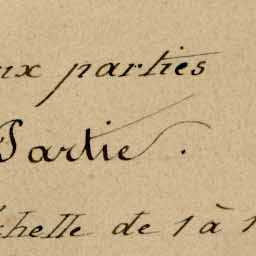 ux parties
Partie.
chelle de 1 à 1